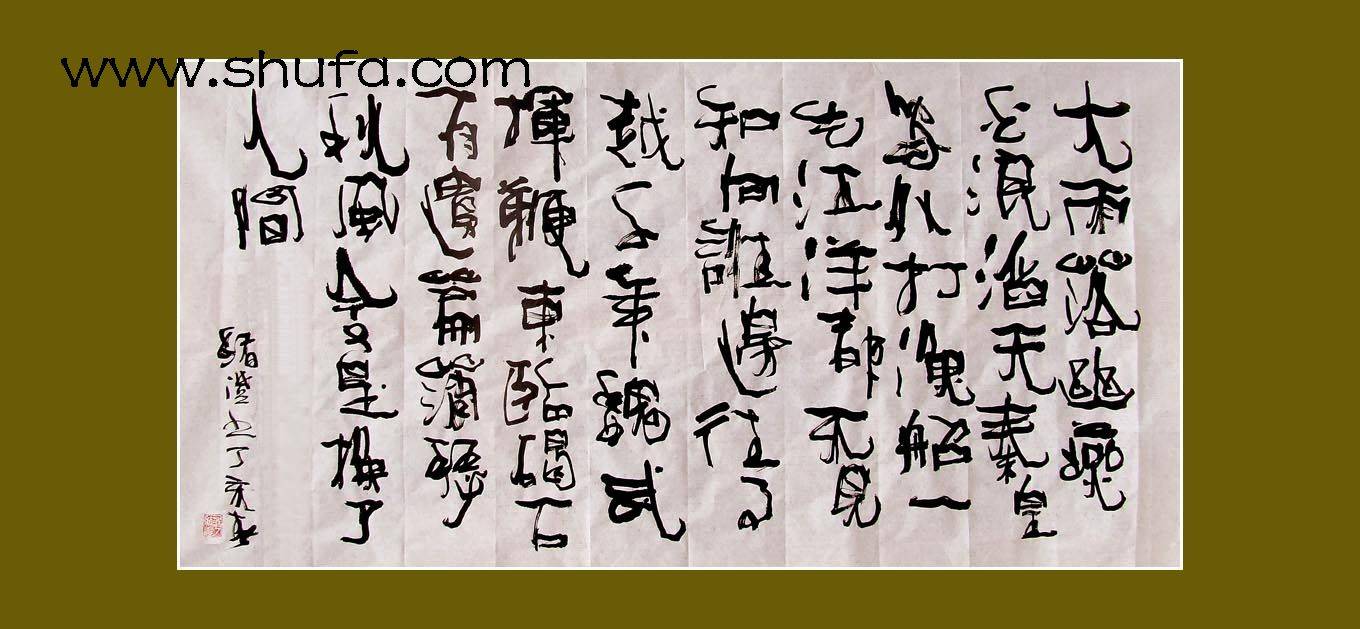 www.shufa.com
大雨落幽燕
白浪滔天秦皇
島外打漁船一
片汪洋都不見
知向誰邊往事
越千年魏武
揮鞭東臨碣石
有遺篇蕭瑟
秋風今又是換了
人間
書丁亥春